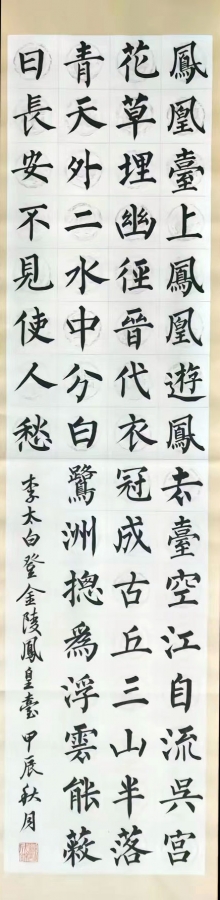 鳳凰臺上鳳凰遊鳳去臺空江自流吳宮
花草埋幽徑晉代衣冠成古丘三山半落
青天外二水中分白鷺洲揔爲浮雲能蔽
日長安不見使人愁
李太白登金陵鳳皇臺 甲辰秋月